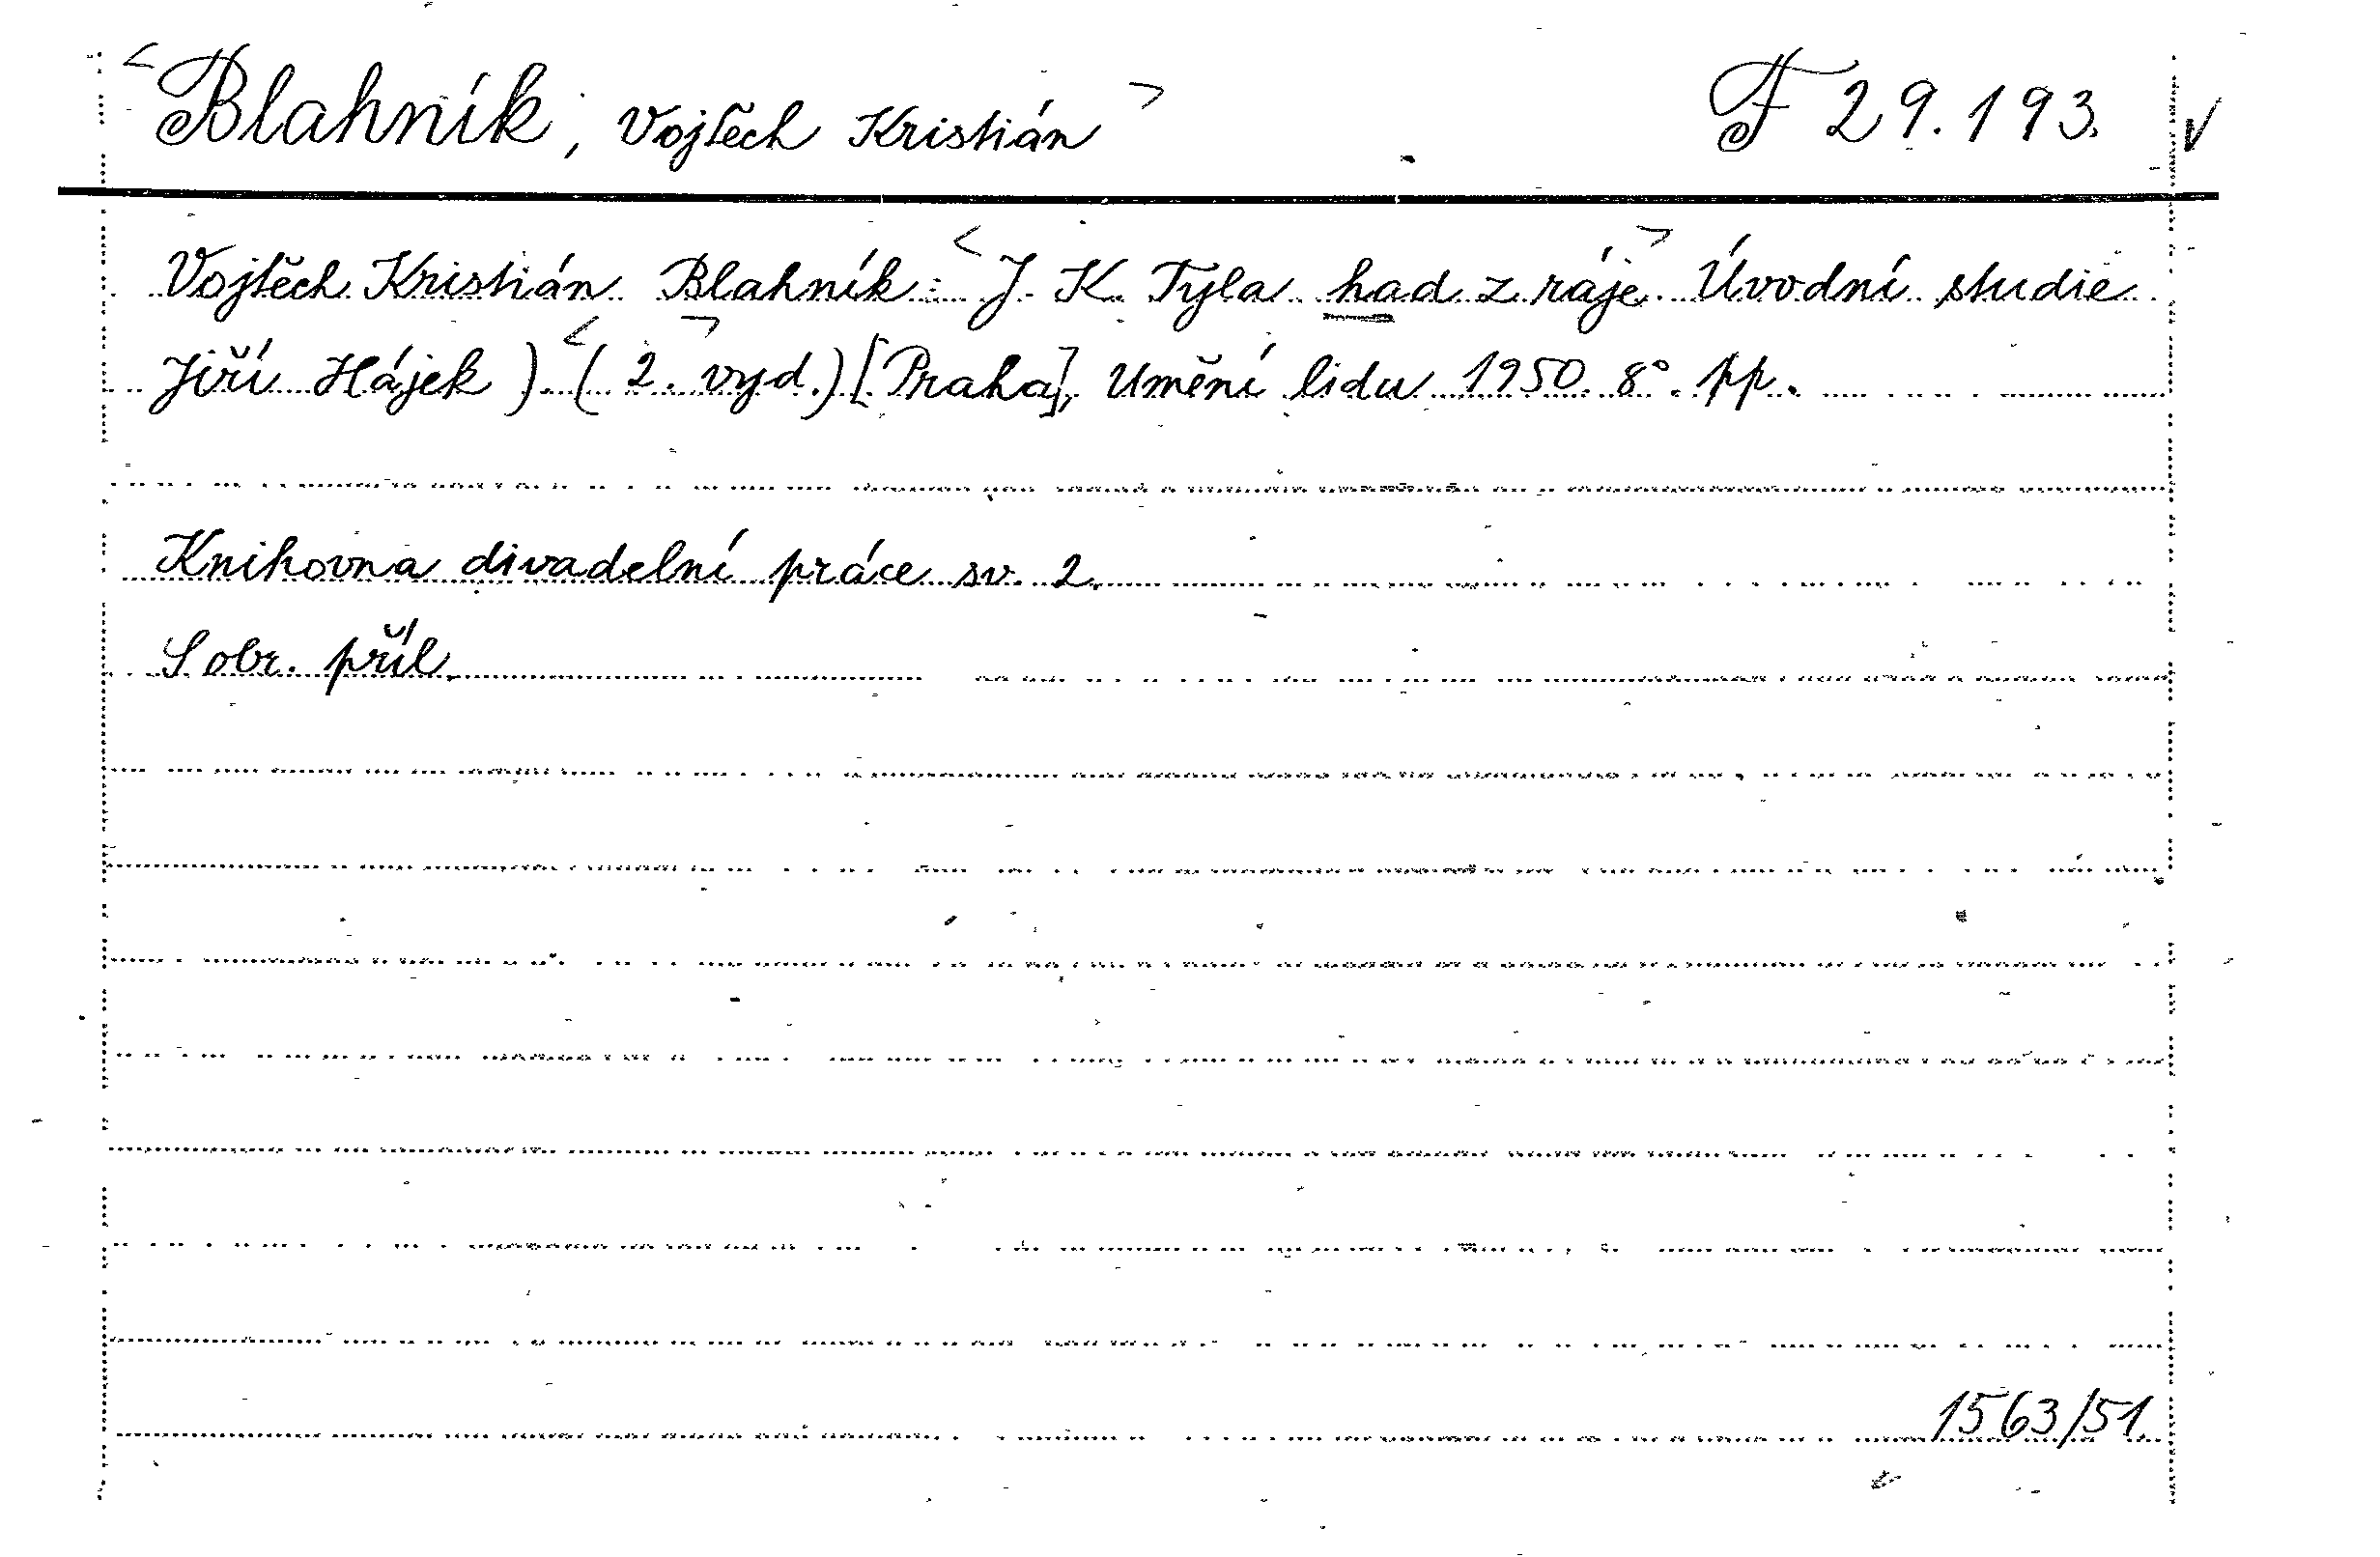 Blahník, Vojtěch Kristián F 29.193. v
Vojtěch Kristián Blahník: J. K. Tyla had z ráje. Úvodní studie
Jiří Hájek). (2. vyd.) [Praha], Umění lidu 1950. 8°. pp.
Knihovna divadelní práce sv. 2.
S obr. příl.
1563/51.